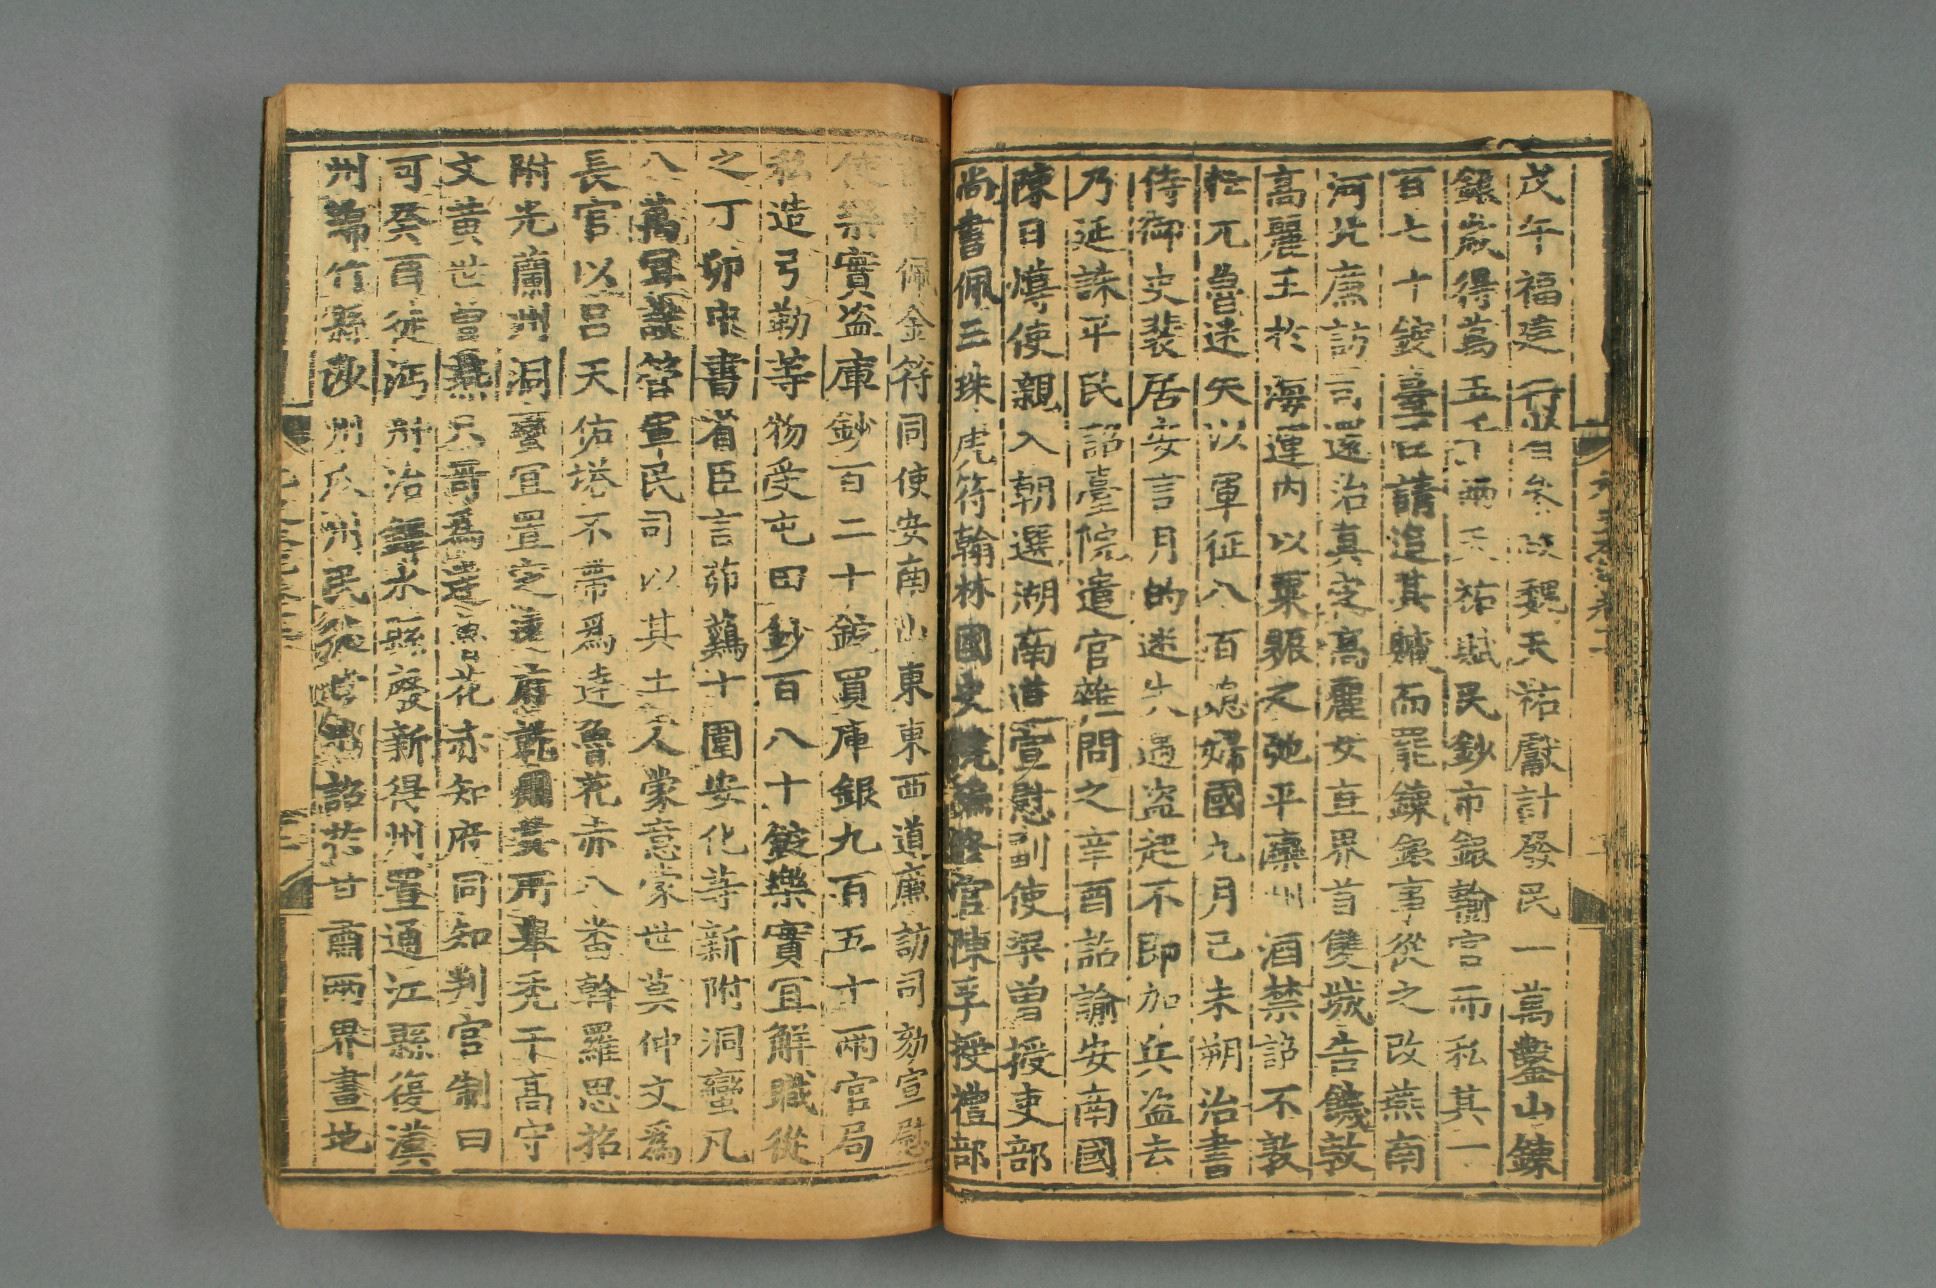 戊午福建行省參政魏天祐獻計發民一萬鑿山鍊
銀歲得萬五千兩天祐賦民鈔市銀輸官而私其一
百七十錠臺臣請追其贓而罷鍊銀事從之改燕南
河北廉訪司還治真定高麗女直界首雙城告饑敕
高麗王於海運內以粟賑之弛平灤州酒禁詔不敦
忙兀魯迷失以軍征八百媳婦國九月己未朔治書
侍御史裴居安言月的迷失遇盜起不即加兵盜去
乃延誅平民詔臺院遣官雜問之辛酉詔諭安南國
陳日燇使親入朝選湖南道宣慰副使梁曾授吏部
尚書佩三珠虎符翰林國史院編修官陳孚授禮部
佩金符同使安南山東東西道廉訪司劾宣慰
使樂實盜庫鈔百二十錠買庫銀九百五十兩官局
私造弓勒等物受屯田鈔百八十錠樂實宜解職從
之丁卯中書省臣言茆鷄十圍安化等新附洞蠻凡
八萬宜設管軍民司以其土人蒙意蒙世莫仲文爲
長官以呂天佑塔不帶爲達魯花赤八番斡羅思招
附光蘭州洞蠻宜置定遠府就用其所舉禿干高守
文黃世曾燕只哥爲達魯花赤知府同知判官制曰
可癸酉徙沔州治鐸水縣廢新得州置通江縣復漢
州綿竹縣沙州瓜州民徙甘州詔於甘肅兩界畫地